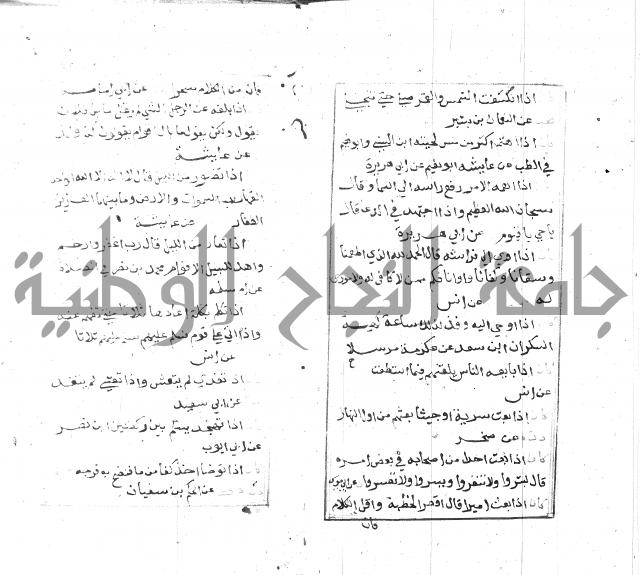 اذا انكسفت الشمس والقمر صلى حتى تنجلى
عن النعمان بن بشير
اذا اهتم اكثر من مس لحيته ابن السني وابو نعيم
في الطب عن عايشه ابو نعيم عن ابي هريرة
اذا اهمه الامر رفع راسه الى السما وقال
سبحان الله العظيم واذا اجتهد في الدعا قال
يا حي يا قيوم عن ابي هريرة
اذا اوي الى فراشه قال الحمد لله الذي اطعمنا
وسقانا وكفانا واوانا فكم ممن لا كافى له ولا مووى
له عن انس
اذا اوحي اليه وقذ لذلك ساعة كهيئة
السكران ابن سعد عن عكرمة مرسلا
اذا بايعه الناس يلقنهم فيما استطعت
عن انس
اذا بعث سرية او جيشا بعثهم من اول النهار
عن صخر
كان اذا بعث احدا من اصحابه في بعض امره
قال بشروا ولا تنفروا ويسروا ولا تعسروا
كان اذا بعث اميرا قال اقصر الخطبة واقل الكلام
فان
فان من الكلام سحرا عن ابي امامه
اذا بلغه عن الرجل الشي لم يقل ما بال فلان
يقول ولكن يقول ما بال اقوام يقولون كذا وكذا
عن عايشة
اذا تضور من الليل قال لا اله الا الله الواحد
القهار رب السموات والارض وما بينهما العزيز
الغفار عن عايشة
اذا تعار من الليل قال رب اغفر وارحم
واهد للسبيل الاقوم محمد بن نصر في الصلاة
عن ام سلمه
اذا تكلم بكلمة اعادها ثلاثا حتى تفهم عنه
واذا اتى على قوم فسلم عليهم سلم عليهم ثلاثا
عن انس
اذا تغدى لم يتعش واذا تعشى لم يتغد
عن ابي سعيد
اذا تهجد يسلم بين ركعتين ابن نصر
عن ابي ايوب
اذا توضا اخذ كفا من ما فنضح به فرجه
عن الحكم بن سفيان
جامعة النجاح الوطنية